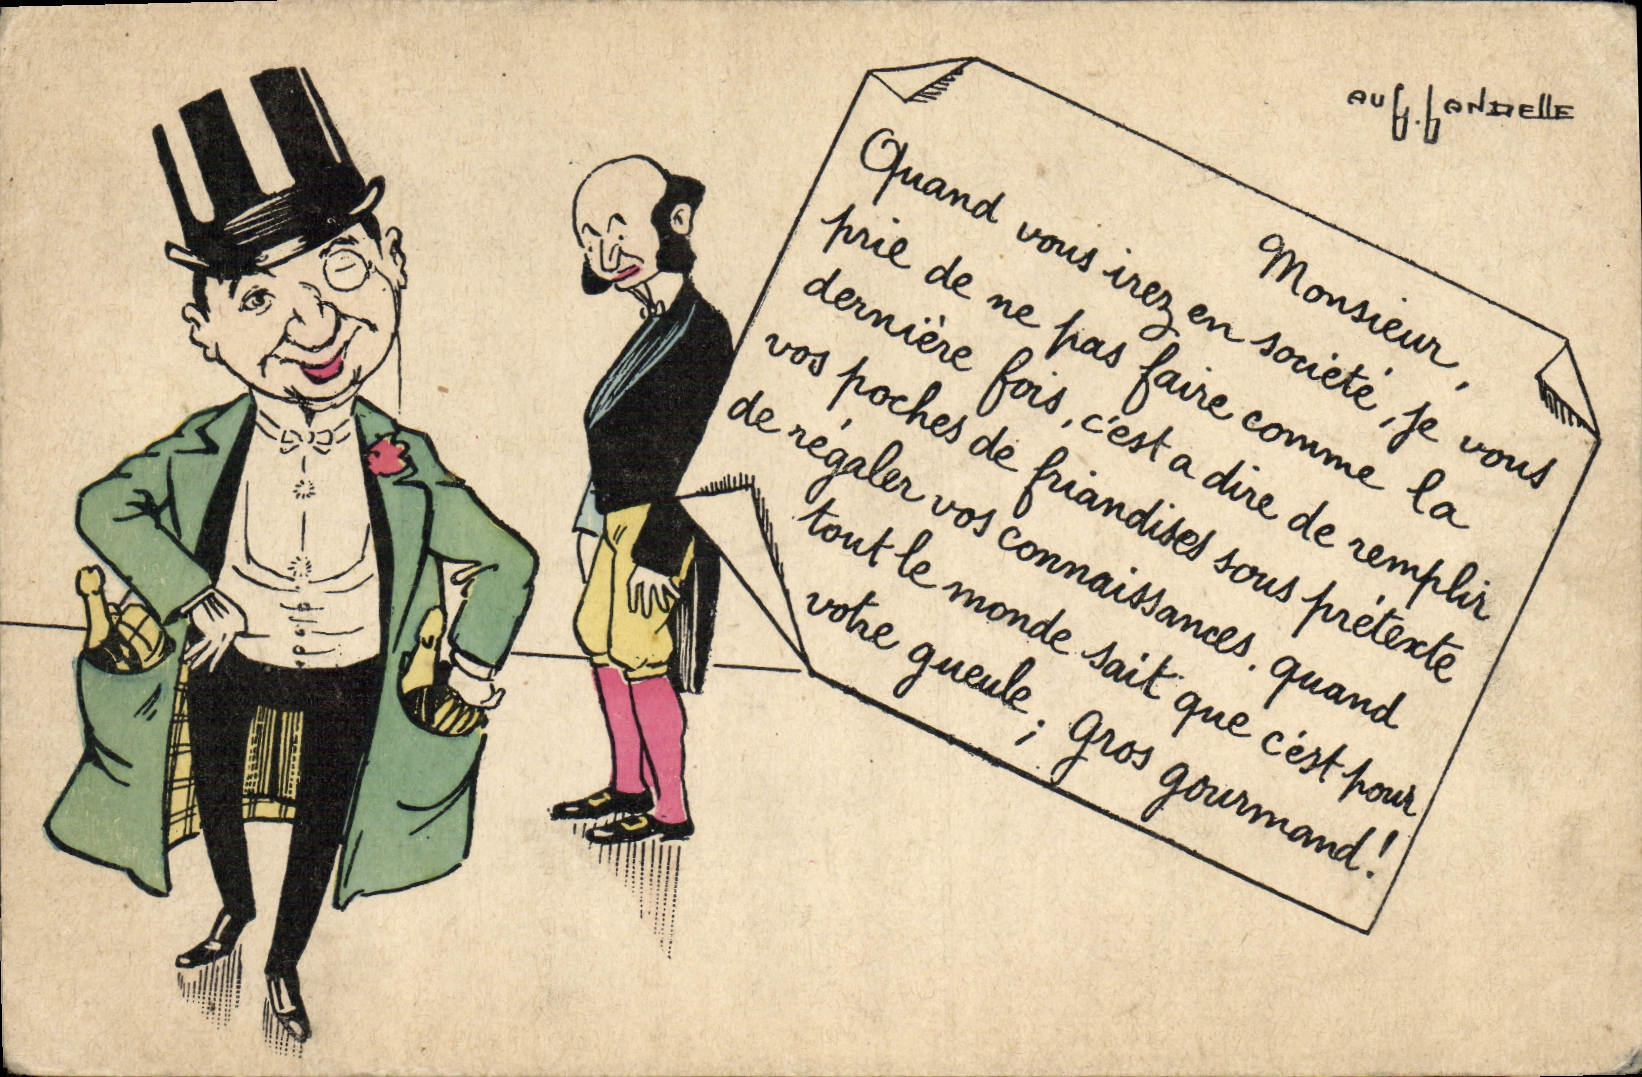 AUG. GANDELLE
Monsieur,
Quand vous irez en société, je vous
prie de ne pas faire comme la
dernière fois, c'est a dire de remplir
vos poches de friandises sous prétexte
de régaler vos connaissances. quand
tout le monde sait que c'est pour
votre gueule; Gros gourmand!